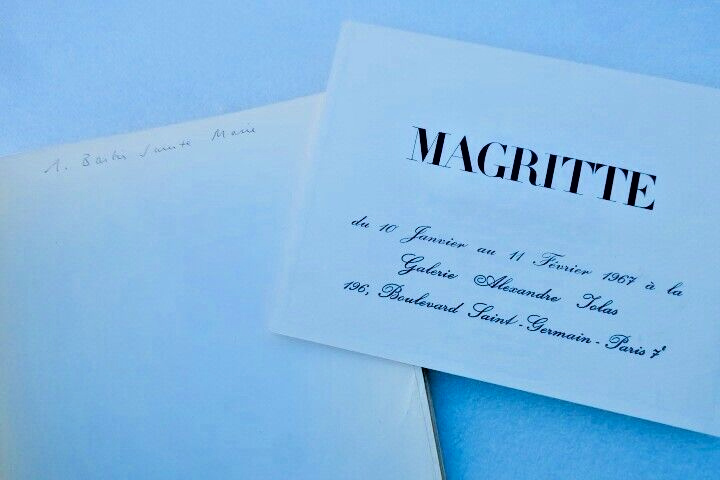 A. Barbier Sainte Marie
MAGRITTE
du 10 Janvier au 11 Février 1967 à la
Galerie Alexandre Iolas
196, Boulevard Saint-Germain - Paris 7e